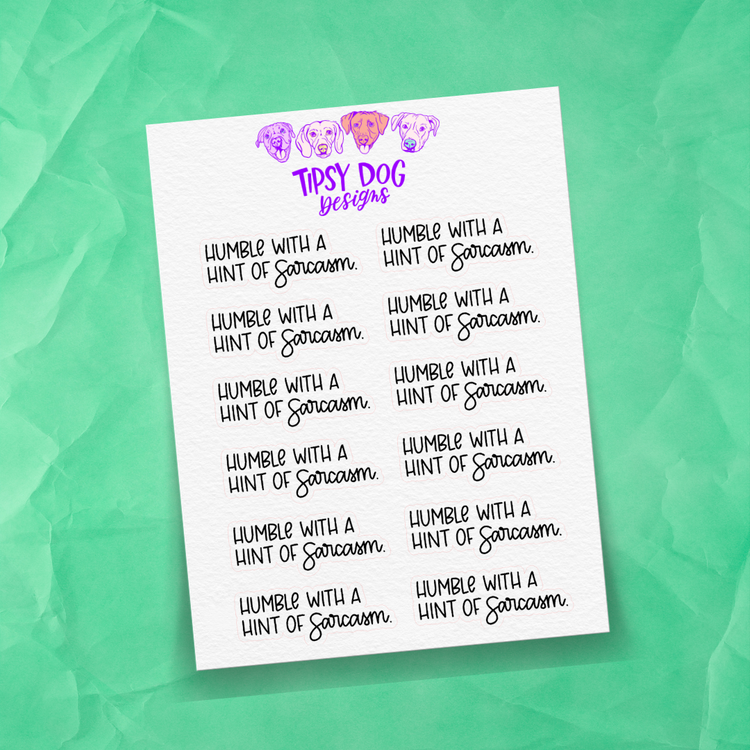 TIPSY DOG
Designs
HUMBLE WITH A
HINT OF Sarcasm.
HUMBLE WITH A
HINT OF Sarcasm.
HUMBLE WITH A
HINT OF Sarcasm.
HUMBLE WITH A
HINT OF Sarcasm.
HUMBLE WITH A
HINT OF Sarcasm.
HUMBLE WITH A
HINT OF Sarcasm.
HUMBLE WITH A
HINT OF Sarcasm.
HUMBLE WITH A
HINT OF Sarcasm.
HUMBLE WITH A
HINT OF Sarcasm.
HUMBLE WITH A
HINT OF Sarcasm.
HUMBLE WITH A
HINT OF Sarcasm.
HUMBLE WITH A
HINT OF Sarcasm.